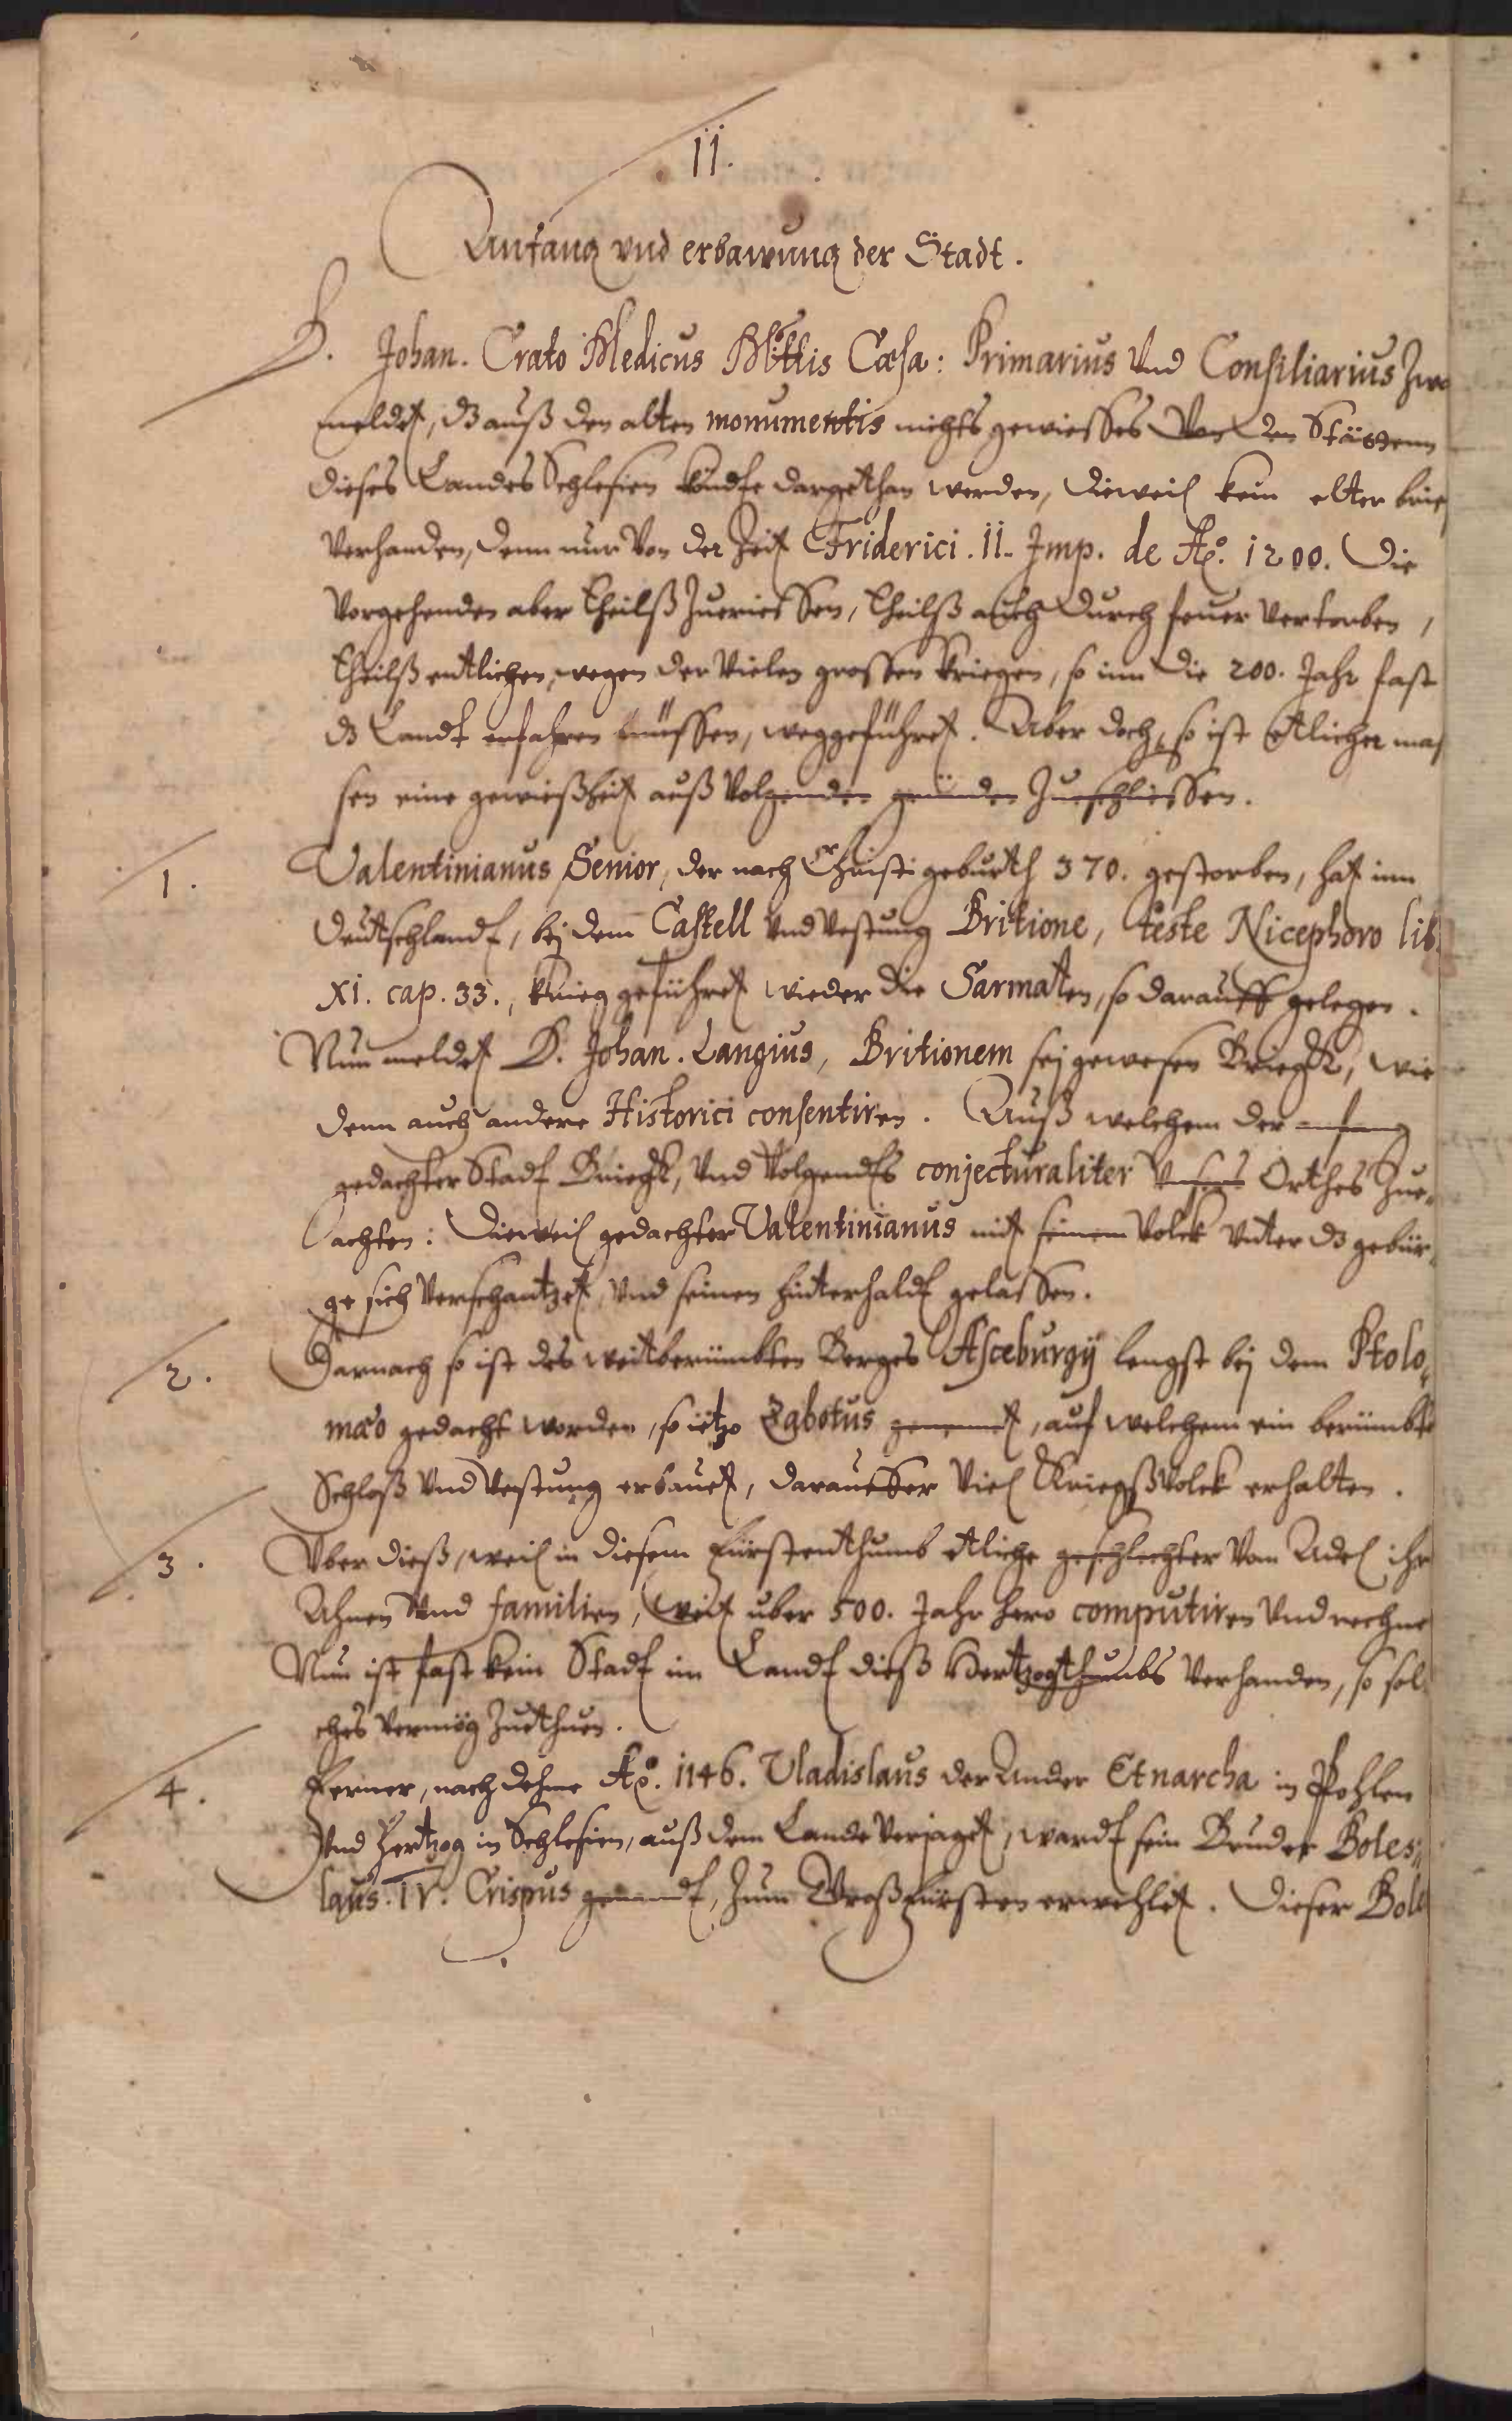 II.
Anfang vnd erbawung der Stadt.
D. Johan. Crato Medicus Mttis Cæsa: Primarius Vnd Consiliarius Zwar
meldet, dz auß den alten monumentis nichts gewisses Von den Stätten
dieses Landes Schlesien köndte dargethan werden, dieweil kein elter brief
Verhanden, denn nur Von der Zeit Friderici. II. Imp. de Ao. 1200. Die
Vorgehenden aber theilß Zuerissen, theilß auch durch feuer Vertorben,
theilß entlichen, wegen der Vielen grossen kriegen, so inn die 200. Jahr fast
dz Landt erfahren müssen, weggeführet. Aber doch, so ist etlicher mas
sen eine gewißheit auß Volgenden gründen Zueschliessen.
1. Valentinianus Senior, der nach Christi geburth 370. gestorben, hat inn
Deutschlandt, bej dem Castell Vnd Vestung Britione, teste Nicephoro lib.
XI. cap. 33., krieg geführet wieder die Sarmaten, so darauff gelegen.
Nun meldet D. Johan. Langius, Britionem sej gewesen Briegk, wie
denn auch andere Historici consentiren. Auß welchem der anfang
gedachter Stadt Briegk, Vnd Volgendts conjecturaliter Vnsers Orthes Zue
achten: Dieweil gedachter Valentinianus mit seinem Volck Vnter dz gebür
ge sich Verschantzet, Vnd seinen hinterhaldt gelassen.
2. Darnach so ist des weitberümbten Berges Asceburgij lengst bej dem Ptolo
mæo gedacht worden, so ietzo Zabotus genennet, auf welchem ein berümbte
Schloß Vnd Vestung erbauet, darausser Viel Kriegßvolck erhalten.
3. Vber dieß, weil in diesem Fürstenthumb etliche geschlechter Vom Adel ihr
Ahnen Vnd familien, weit uber 500. Jahr hero computiren Vnd rechne
Nun ist fast kein Stadt im Landt dieß Hertzogthumbs Verhanden, so sol
ches Vermög Zuethuen.
4. Ferner, nach dehme Ao. 1146. Vladislaus der Ander Etnarcha in Pohlen
Vnd Hertzog in Schlesien, auß dem Lande Verjaget, wardt sein Bruder Boles
laus. IV. Crispus genandt, Zum Großfürsten erwehlet. Dieser Bole